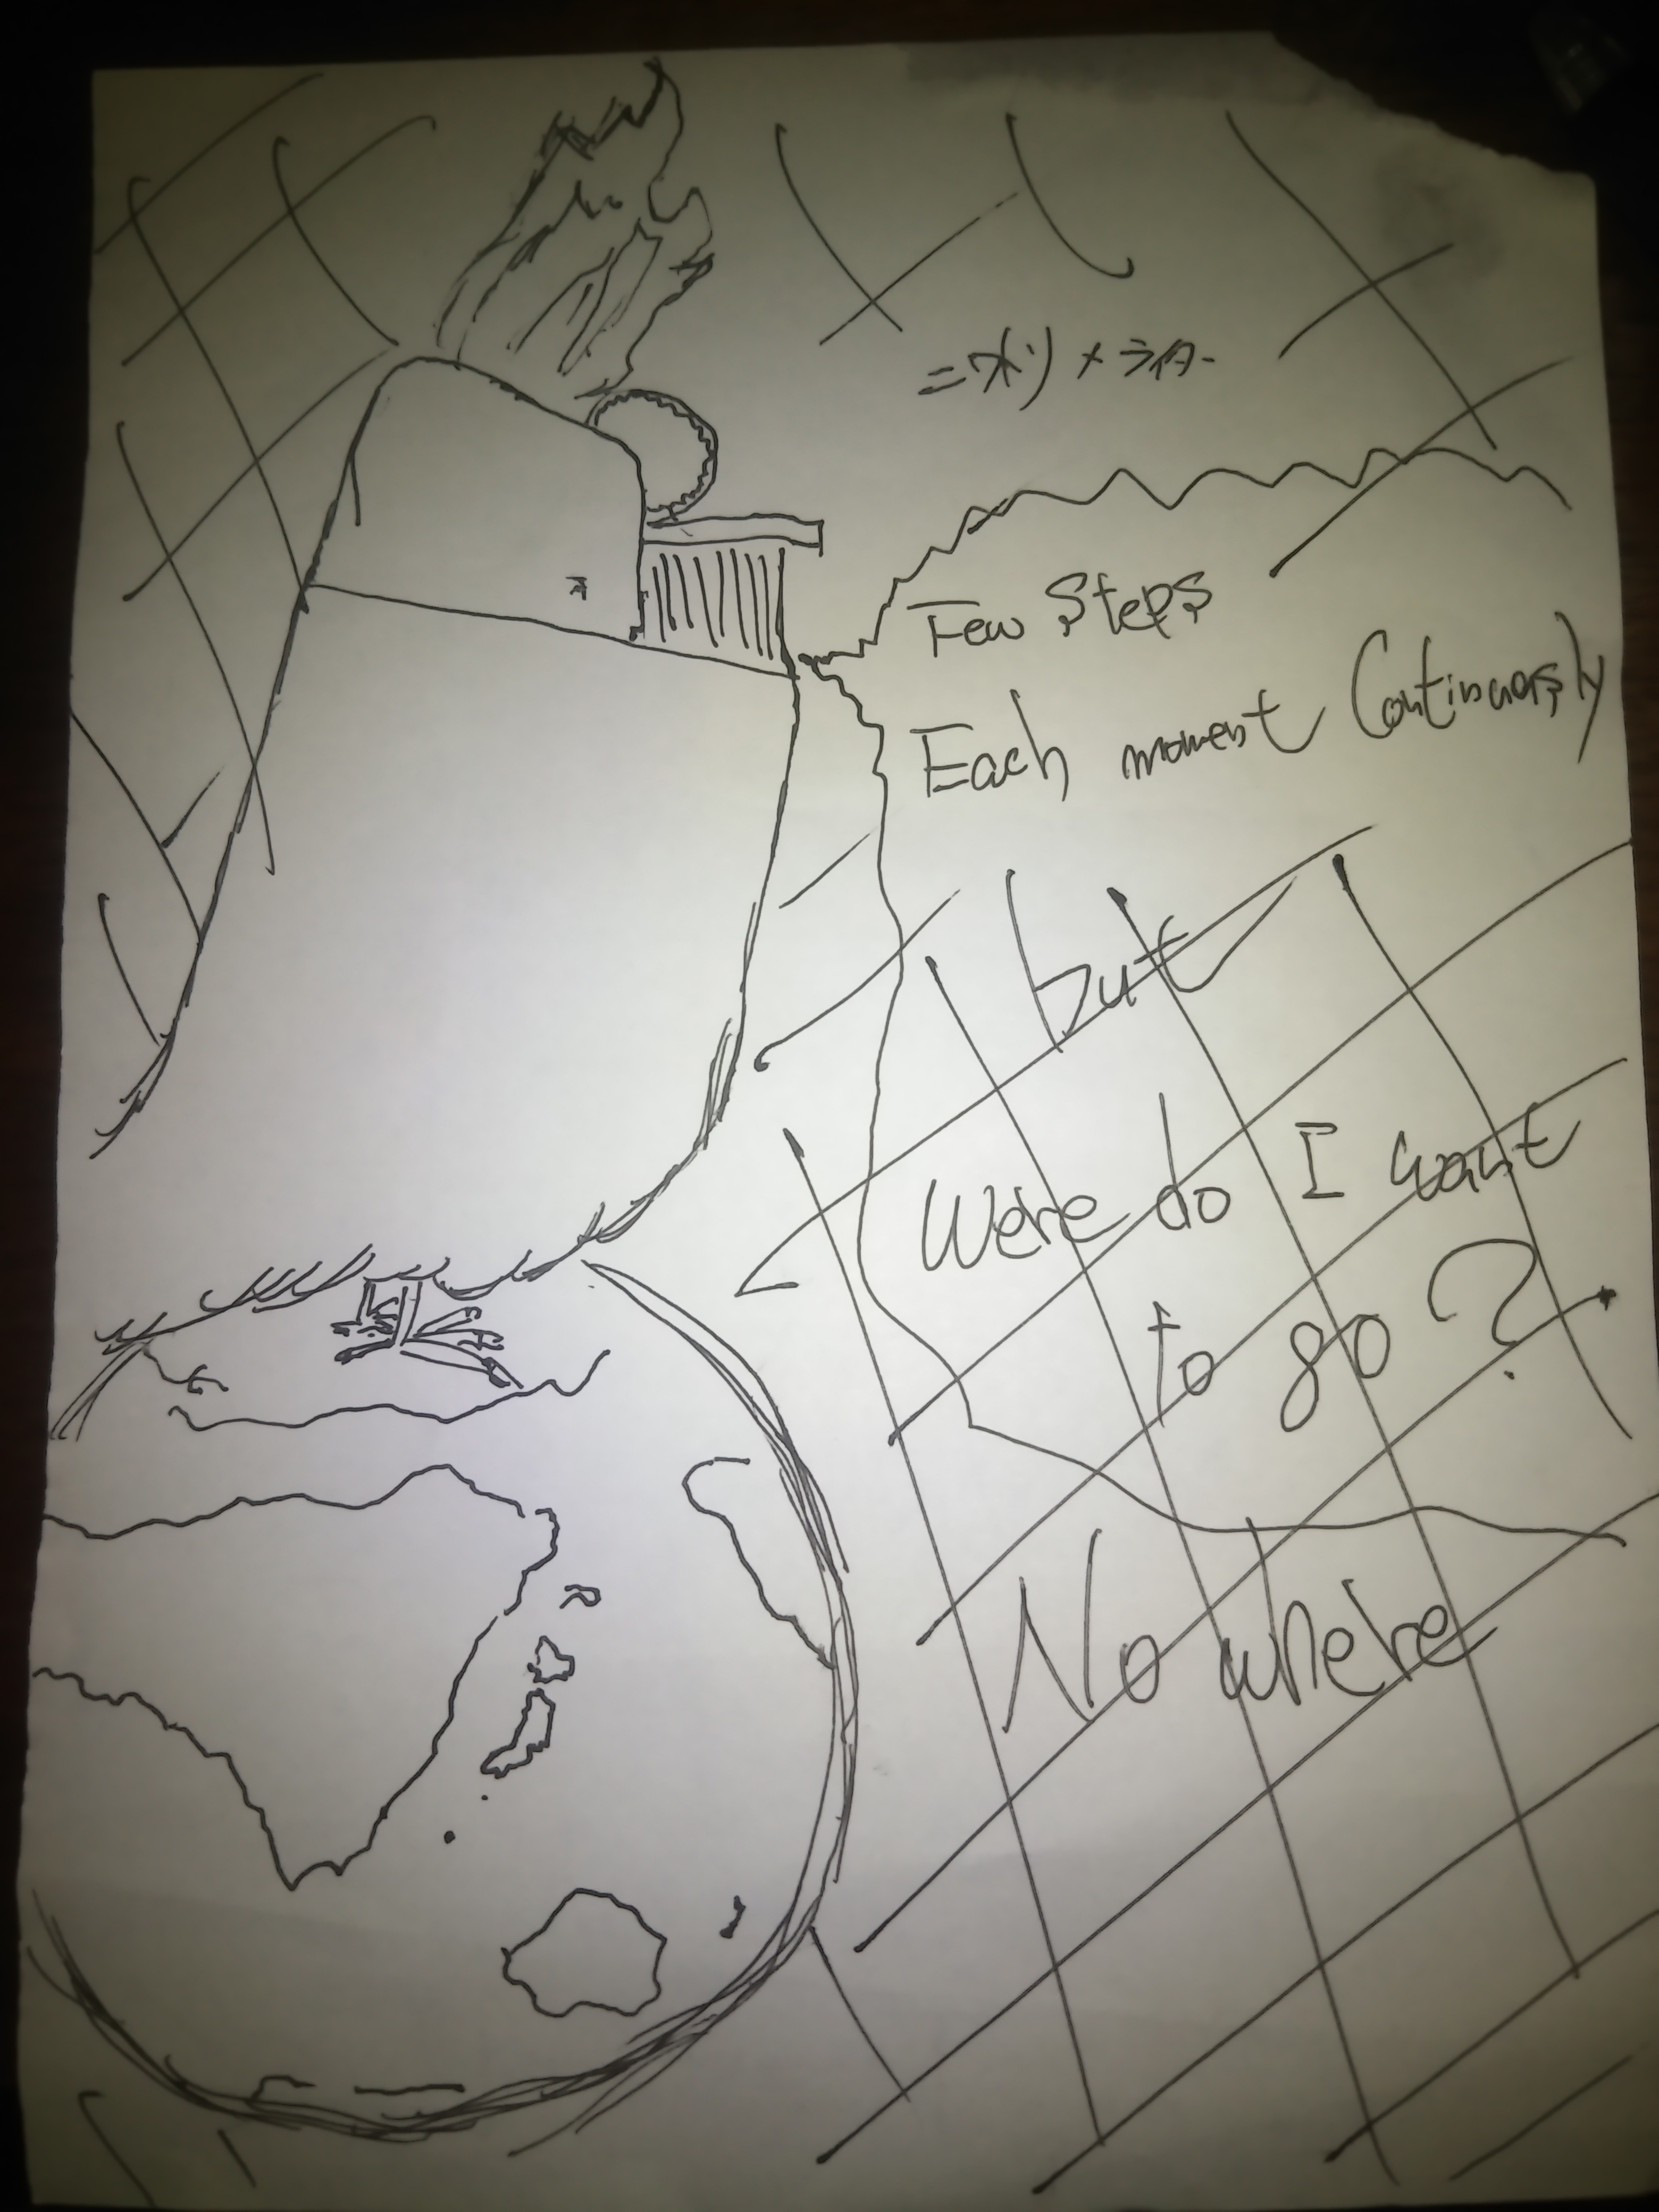 Few Steps
Each moment Continuously
but
Were do I want
to go?
No where